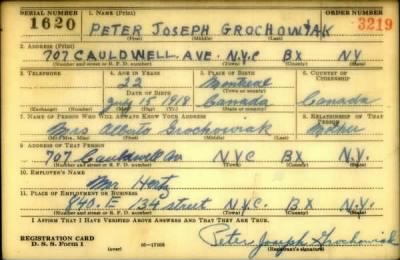 SERIAL NUMBER 1. NAME (Print) ORDER NUMBER
1620 PETER JOSEPH GROCHOWIAK 3219
(First) (Middle) (Last)
2. ADDRESS (Print)
707 CAULDWELL AVE. N.Y.C BX NY
(Number and street or R. F. D. number) (Town) (County) (State)
3. TELEPHONE 4. AGE IN YEARS 5. PLACE OF BIRTH 6. COUNTRY OF CITIZENSHIP
22 Montreal
DATE OF BIRTH (Town or county)
July 15 1918 Canada Canada
(Exchange) (Number) (Mo.) (Day) (Yr.) (State or country)
7. NAME OF PERSON WHO WILL ALWAYS KNOW YOUR ADDRESS 8. RELATIONSHIP OF THAT PERSON
Mrs Grochowiak Mother
(Mr., Mrs., Miss) (First) (Middle) (Last)
9. ADDRESS OF THAT PERSON
707 Cauldwell Av N.Y.C BX N.Y.
(Number and street or R. F. D. number) (Town) (County) (State)
10. EMPLOYER'S NAME
Mr. Hertz
11. PLACE OF EMPLOYMENT OR BUSINESS
840. E 134 street N.Y.C. BX N.Y.
(Number and street or R. F. D. number) (Town) (County) (State)
I AFFIRM THAT I HAVE VERIFIED ABOVE ANSWERS AND THAT THEY ARE TRUE.
REGISTRATION CARD
D. S. S. Form 1 (over) Peter Joseph Grochowiak
(Registrant's signature)